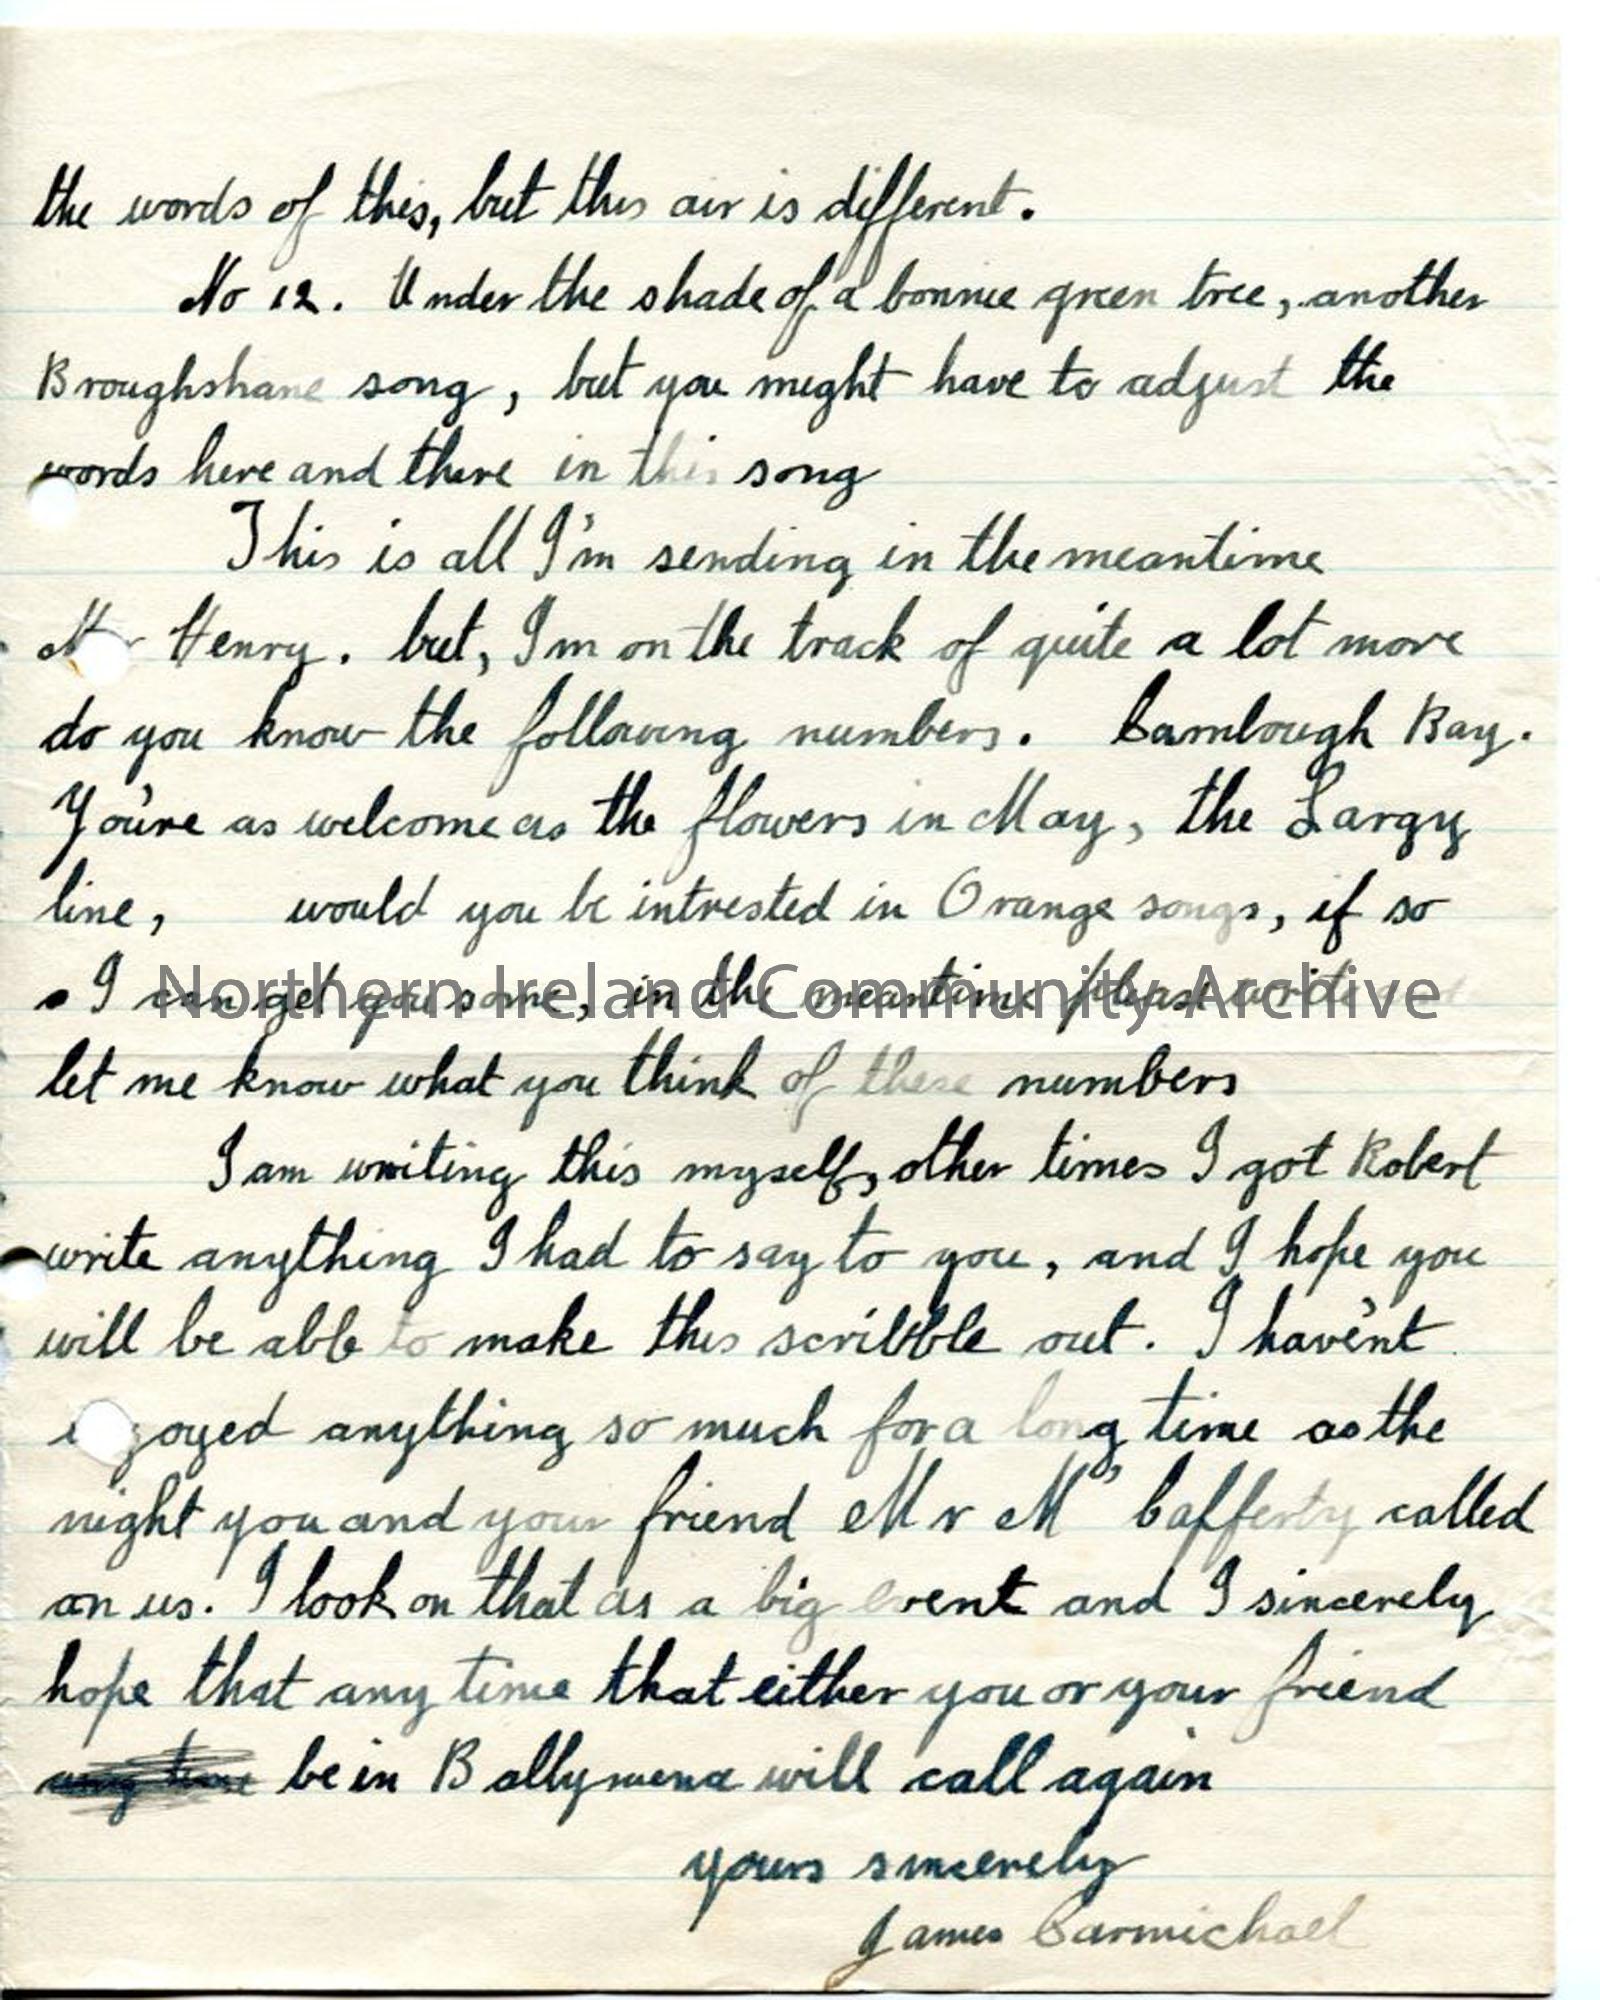 the words of this, but this air is different.
No 12. Under the shade of a bonnie green tree, another
Broughshane song, but you might have to adjust the
words here and there in this song
This is all I'm sending in the meantime
Mr Henry. but, I'm on the track of quite a lot more
do you know the following numbers. Cambough Bay.
You're as welcome as the flowers in May, the Largy
line, would you be intrested in Orange songs, if so
I can get you some, in the meantime please write and
Northern Ireland Community Archive
let me know what you think of these numbers
I am writing this myself, other times I got Robert
write anything I had to say to you, and I hope you
will be able to make this scribble out. I haven't
enjoyed anything so much for a long time as the
night you and your friend Mr Mc Cafferty called
on us. I look on that as a big event and I sincerely
hope that any time that either you or your friend
be in Ballymena will call again
yours sincerely
James Carmichael